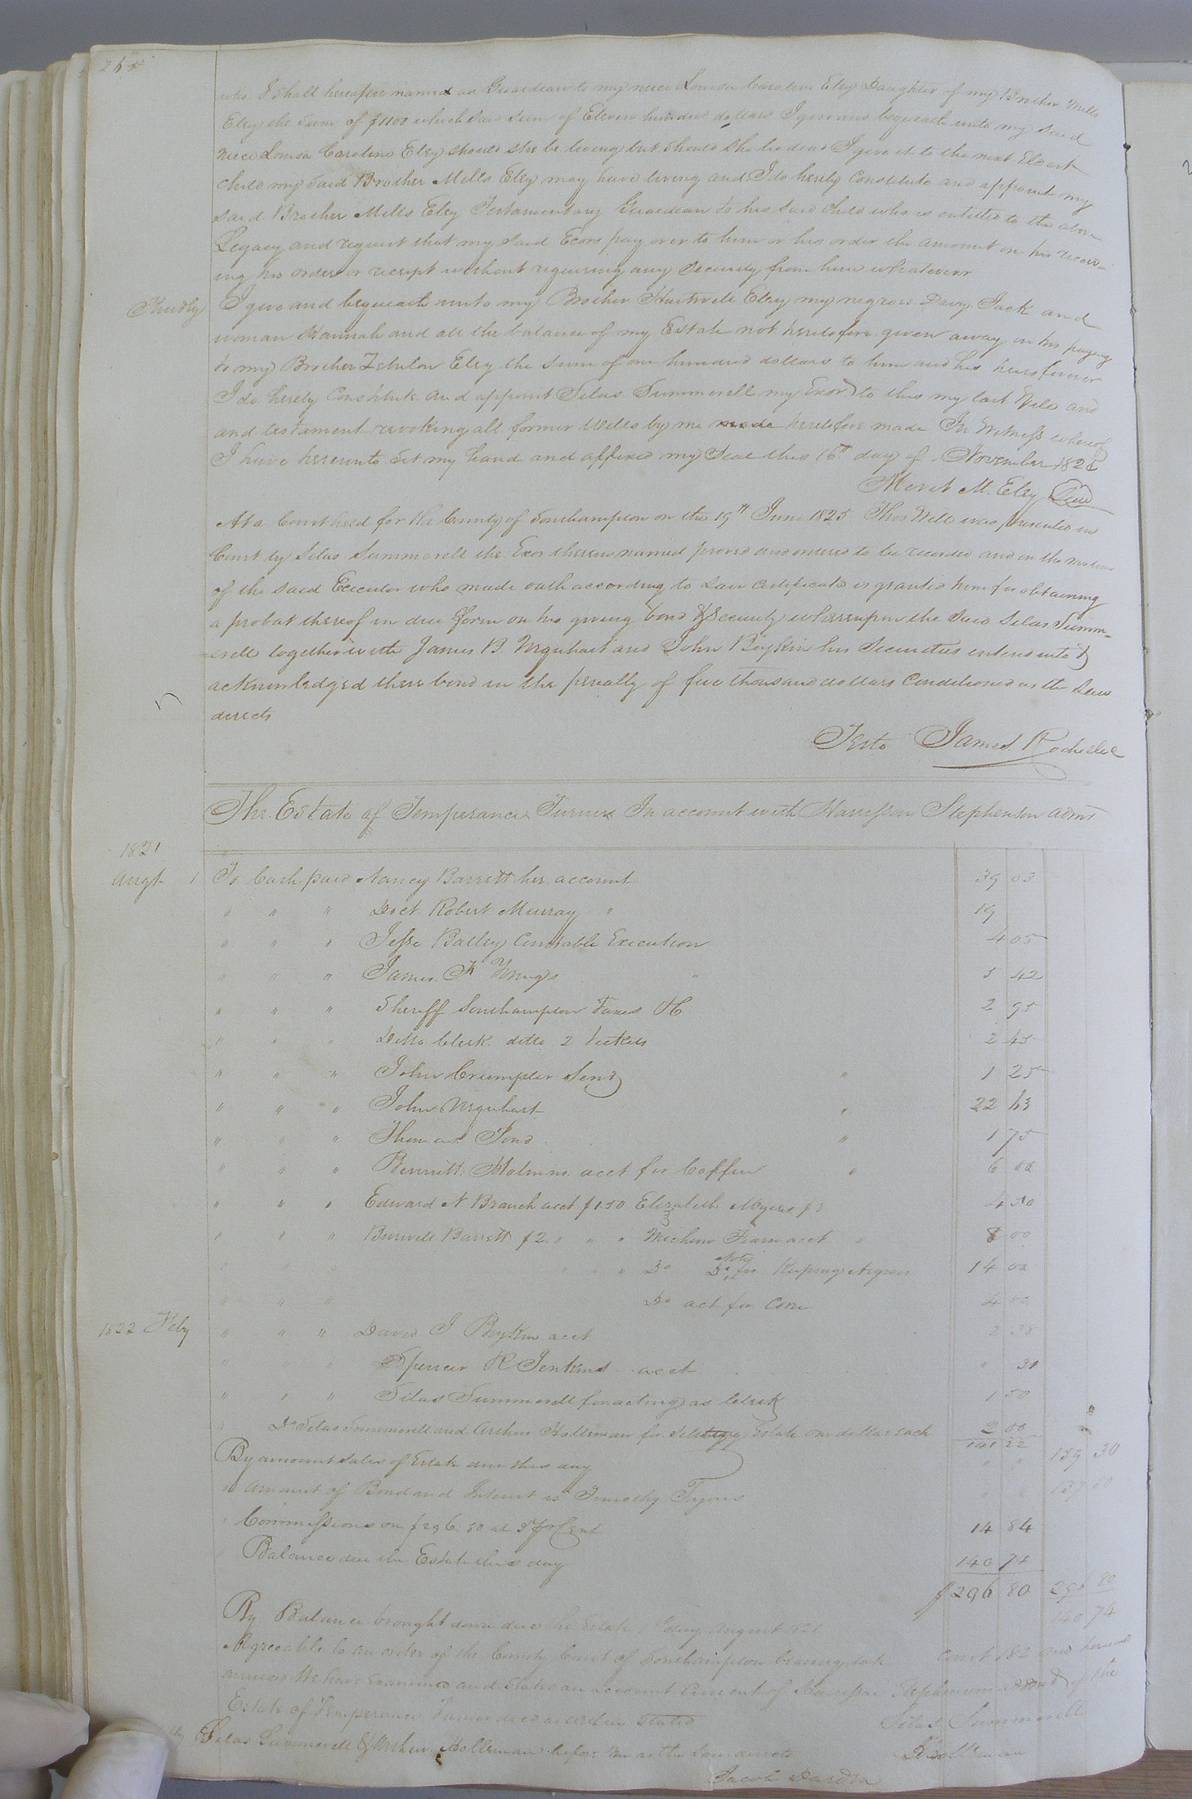 who I shall hereafter named as Guardean to my niece Louisa Caroline Eley Daughter of my Brother Mills
Eley the Sum of $1100 which said Sum of Eleven hundred dollars I give and bequeath unto my said
niece Louisa Caroline Eley should she be living but should she be dead I give it to the next Eldest
child my said Brother Mills Eley may have living and I do hereby Constitute and appoint my
said Brother Mills Eley Testamentary Guardean to his said child who is entitled to the above
Legacy and request that my said Exor pay over to him or his order the amount on his
ing his order or receipt without requiring any Security from him whatever
Thirdly I give and bequeath unto my Brother Hartwell Eley my negroes Davy Jack and
woman Hannah and all the balance of my Estate not heretofore given away on his paying
to my Brother Zebulon Eley the Sum of one hundred dollars to him and his heirs forever
I do hereby Constitute and appoint Silas Summerell my Exor to this my last Will and
and testament revoking all former Wills by me made heretofore made In Witness whereof
I have hereunto Set my hand and affixed my Seal this 16th day of November
Merit M. Eley Seal
At a Court held for the County of Southampton on the 19th June 1825 This Will was presented in
Court by Silas Summerell the Exor therein named proved and ordered to be recorded and on the motion
of the said Executor who made oath according to Law Certificate is granted him for obtaining
a probat thereof in due form on his giving bond & Security whereupon the said Silas Summ-
erell together with James B. Urquhart and John Boykin his Securities entered into &
acknowledged there bond in the penalty of five thousand dollars Conditioned as the Law
directs
Teste James Rochelle
The Estate of Temperance Turner In account with Harrison Stephenson admr
1821
Augt 1 To Cash paid Nancy Barrett her account 39 03
" " " Doct. Robert Murray " 19
" " " Jesse Bailey Constable Execution 4 05
" " " James 3 42
" " " Sheriff Southampton Taxes &C 2 95
" " " Ditto Clerk ditto 2 tickets 2 45
" " " John Crumpler Senr " 1 25
" " " John Urquhart " 22 63
" " " Thomas Pond " 1 75
" " " Bennett acct for Coffin " 6 00
" " " Edward N Branch acct $1.50 Elizabeth Myrick $3 4 50
" " " Burwell Barrett $2 " " " acct " 8 00
" " " Do Do for Keeping Negroes 14 00
" " " Do act for Corn 4 00
1822 Feby " " " David J Boykin acct 2 38
" " " Spencer R Jenkins acct " 31
" " " Silas Summerell for acting as Clerk 1 50
" Do Silas Summerell and Arthur Holleman for Estate one dollar each 2 00
141 22
By amount Sales of Estate due this day " " 159 30
" Amount of Bond and Interest 137 50
" Commissions on $296.80 at 5 pr Cent 14 84
Balance due the Estate this day 140 74
$296 80 296 80
By Balance brought down due the Estate 1st day August 182 140 74
Agreeable to an order of the County Court of Southampton bearing date Court 182 and hereunto
annexed We have Examined and Stated an account Current of Harrison Stephenson admr of the
Estate of Temperance Turner decd as within Stated
Silas Summerell
Silas Summerell & Arthur Holleman before me as the Law directs
A Holleman
Jacob Darden